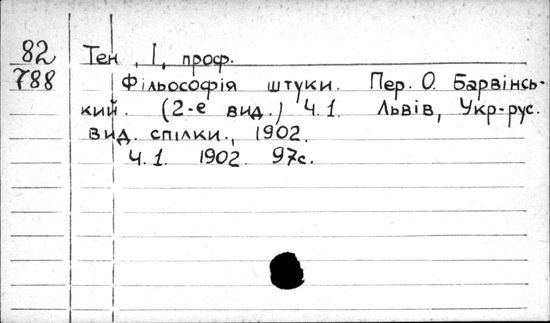 82 Тен, І, проф.
788 Фільософія штуки. Пер. О. Барвінсь-
кий. (2-е вид.) Ч.1. Львів, Укр-рус.
вид. спілки., 1902.
Ч.1. 1902. 97с.